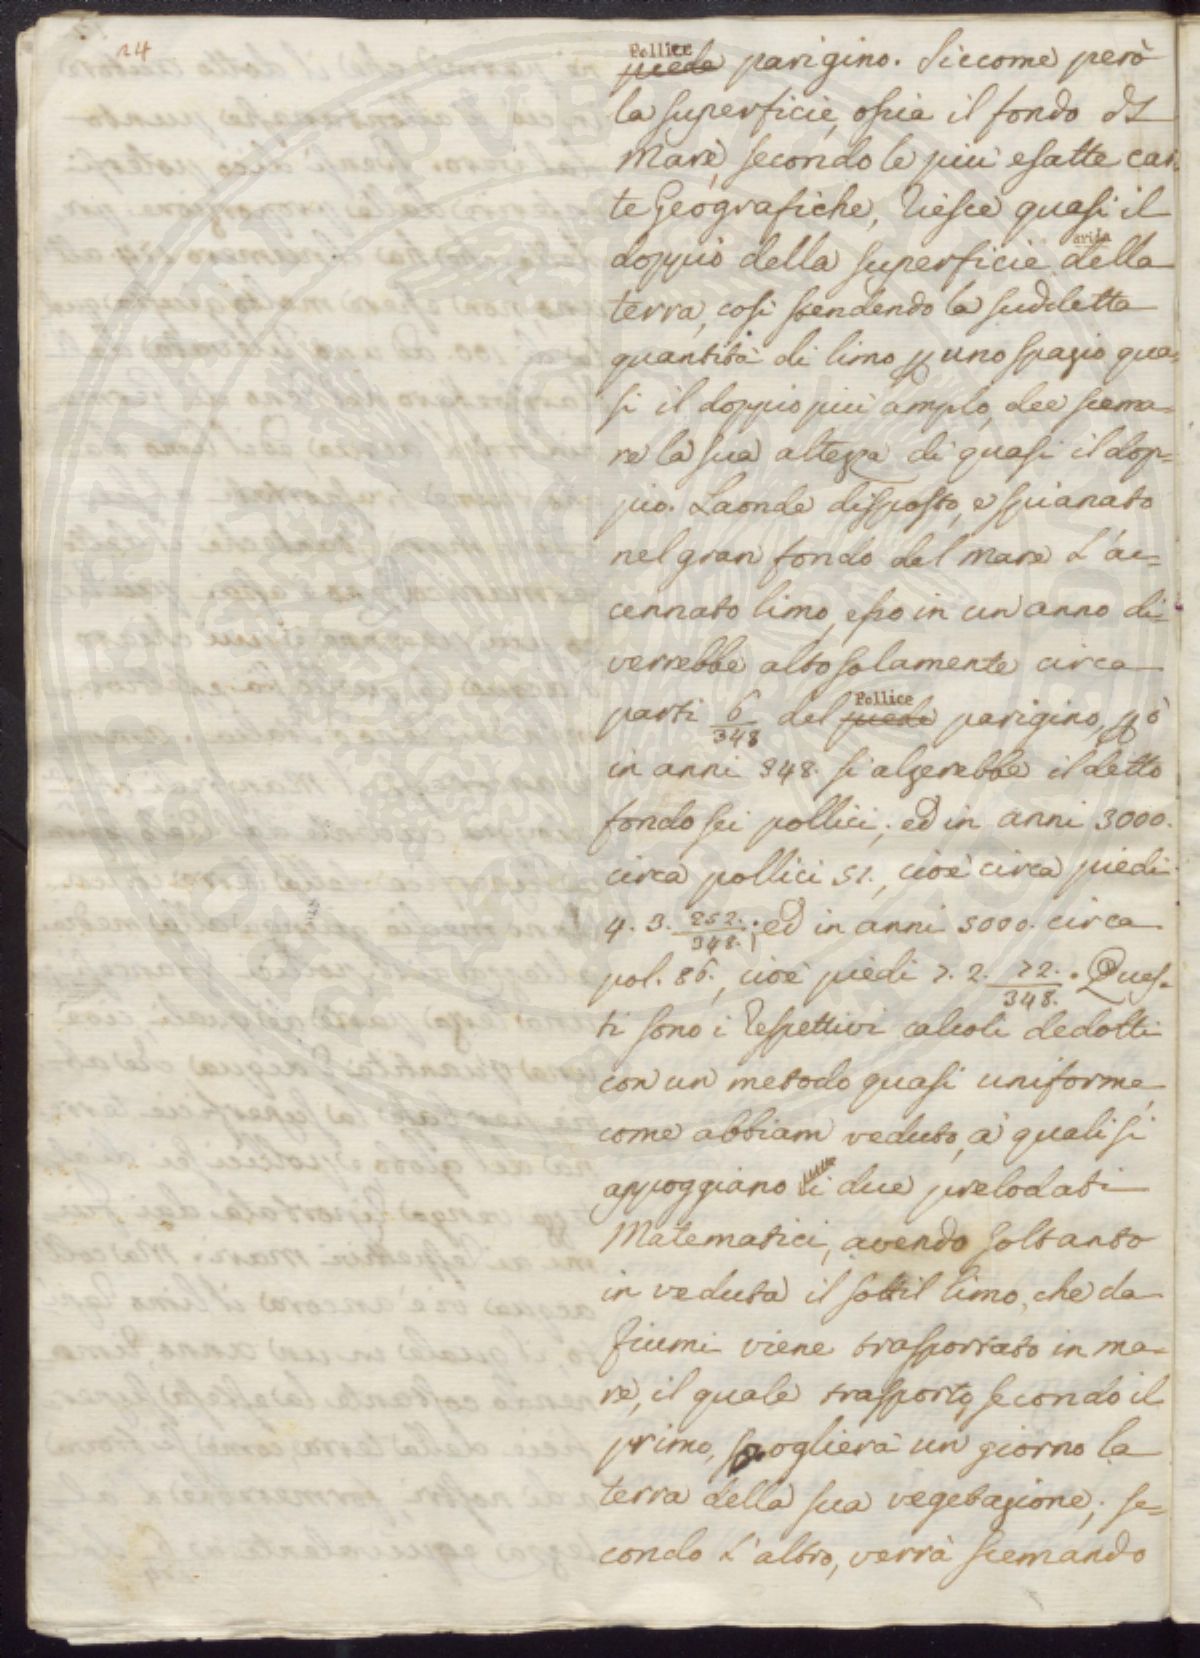 24
Pollice
piede parigino. Siccome però
la superficie, ossia il fondo del
Mare, secondo le più esatte car-
te Geografiche, riesce quasi il
arida
doppio della superficie della
terra, così stendendo la suddetta
quantità di limo per uno spazio qua-
si il doppio più amplo, dee scema-
re la sua altezza di quasi il dop-
pio. Laonde disposto, e spianato
nel gran fondo del mare l'ac-
cennato limo, esso in un anno di-
verrebbe alto solamente circa
Pollice
parti 6/348 del piede parigino, però
in anni 348. si alzerebbe il detto
fondo sei pollici; ed in anni 3000.
circa pollici 51., cioè circa piedi
4. 3. 252./348.; ed in anni 5000. circa
pol. 86., cioè piedi 7. 2. 72./348. Ques-
ti sono i respettivi calcoli dedotti
con un metodo quasi uniforme,
come abbiam veduto, a' quali si
appoggiano li due prelodati
Matematici, avendo soltanto
in veduta il sottil limo, che da
fiumi viene trasportato in ma-
re, il quale trasporto, secondo il
primo, spoglierà un giorno la
terra della sua vegetazione; se-
condo l'altro, verrà scemando